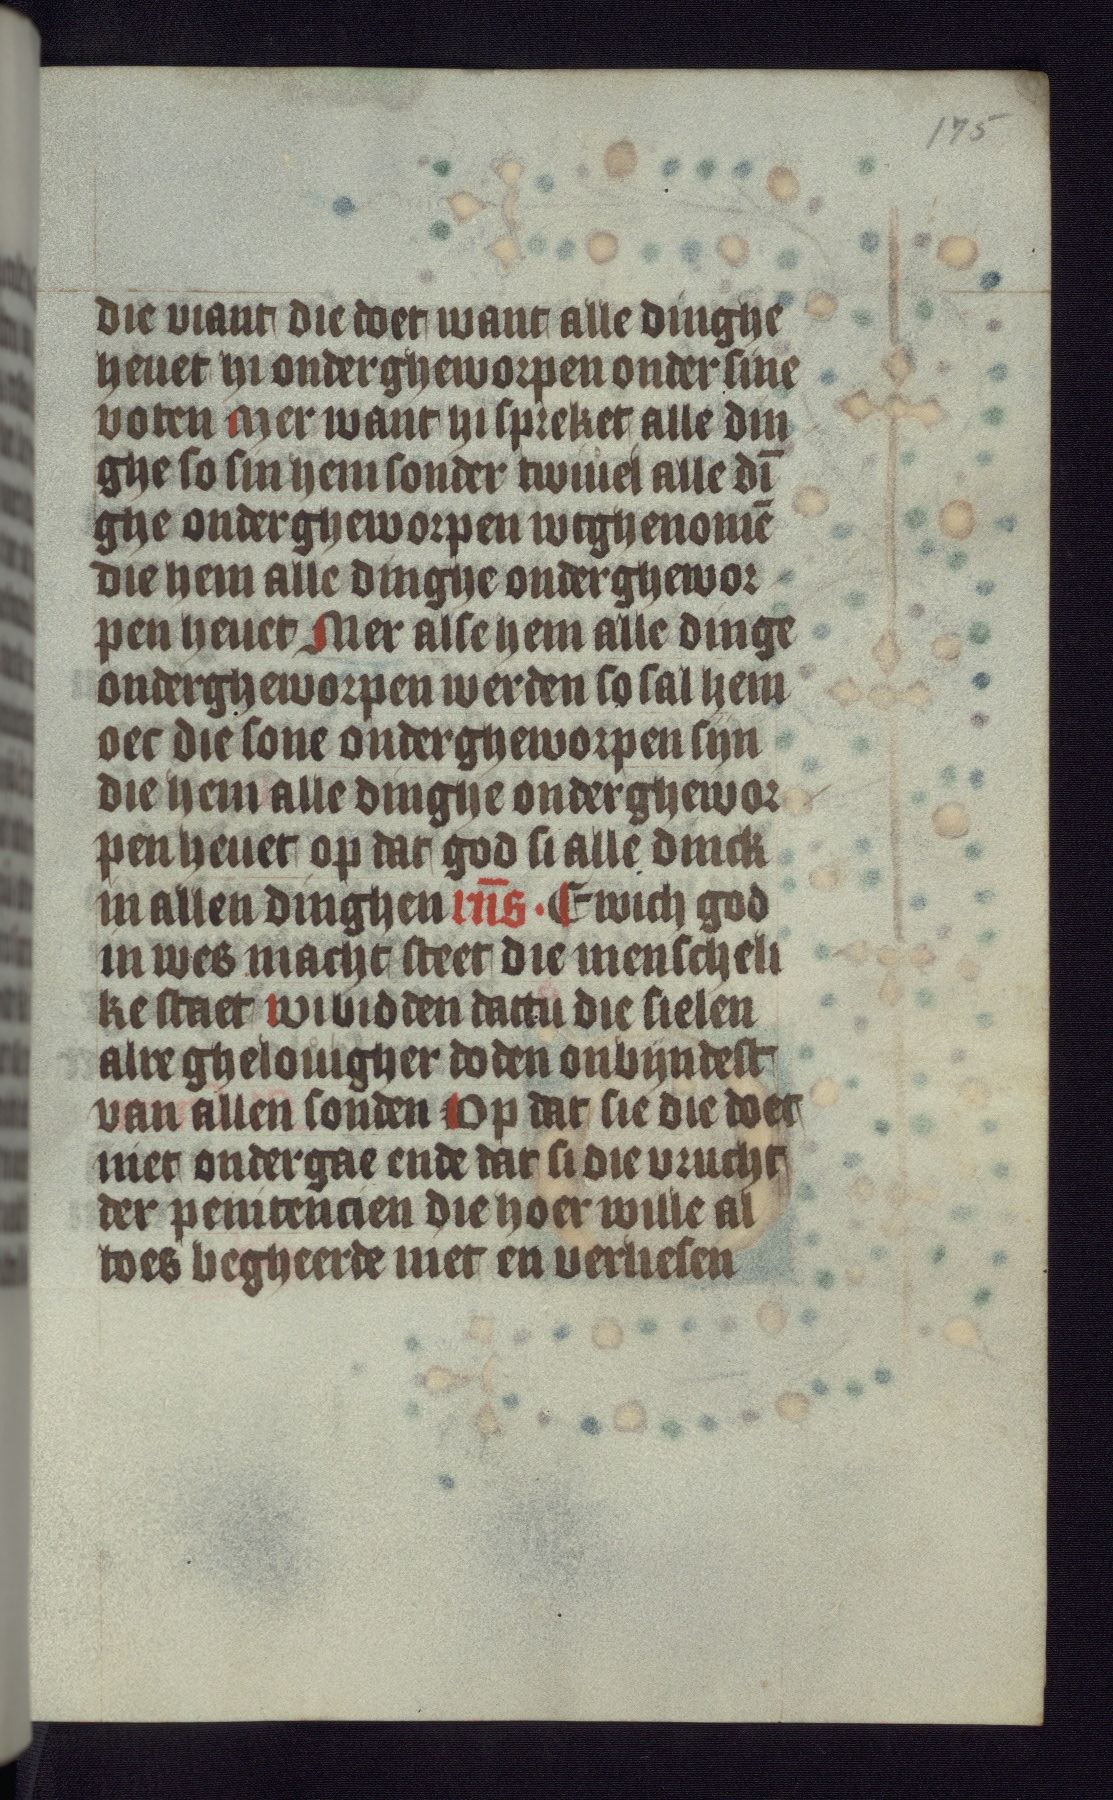 175
die viant die doet want alle dinghe
heuet hi ondergheworpen onder sine
voten Mer want hi spreket alle din
ghe so sin hem sonder twiuel alle dī
ghe ondergheworpen wtghenomē
die hem alle dinghe onderghewor
pen heuet Mer alse hem alle dinge
ondergheworpen werden so sal hem
oec die sone ondergheworpen sijn
die hem alle dinghe onderghewor
pen heuet op dat god si alle dinck
in allen dinghen Ewich god
in wes macht steet die menscheli
ke staet wi bidden dattu die sielen
alre ghelouigher doden onbijndest
van allen sonden Op dat sie die doet
niet ondergae ende dat si die vrucht
der penitencien die hoer wille al
toes begheerde niet en verliesen